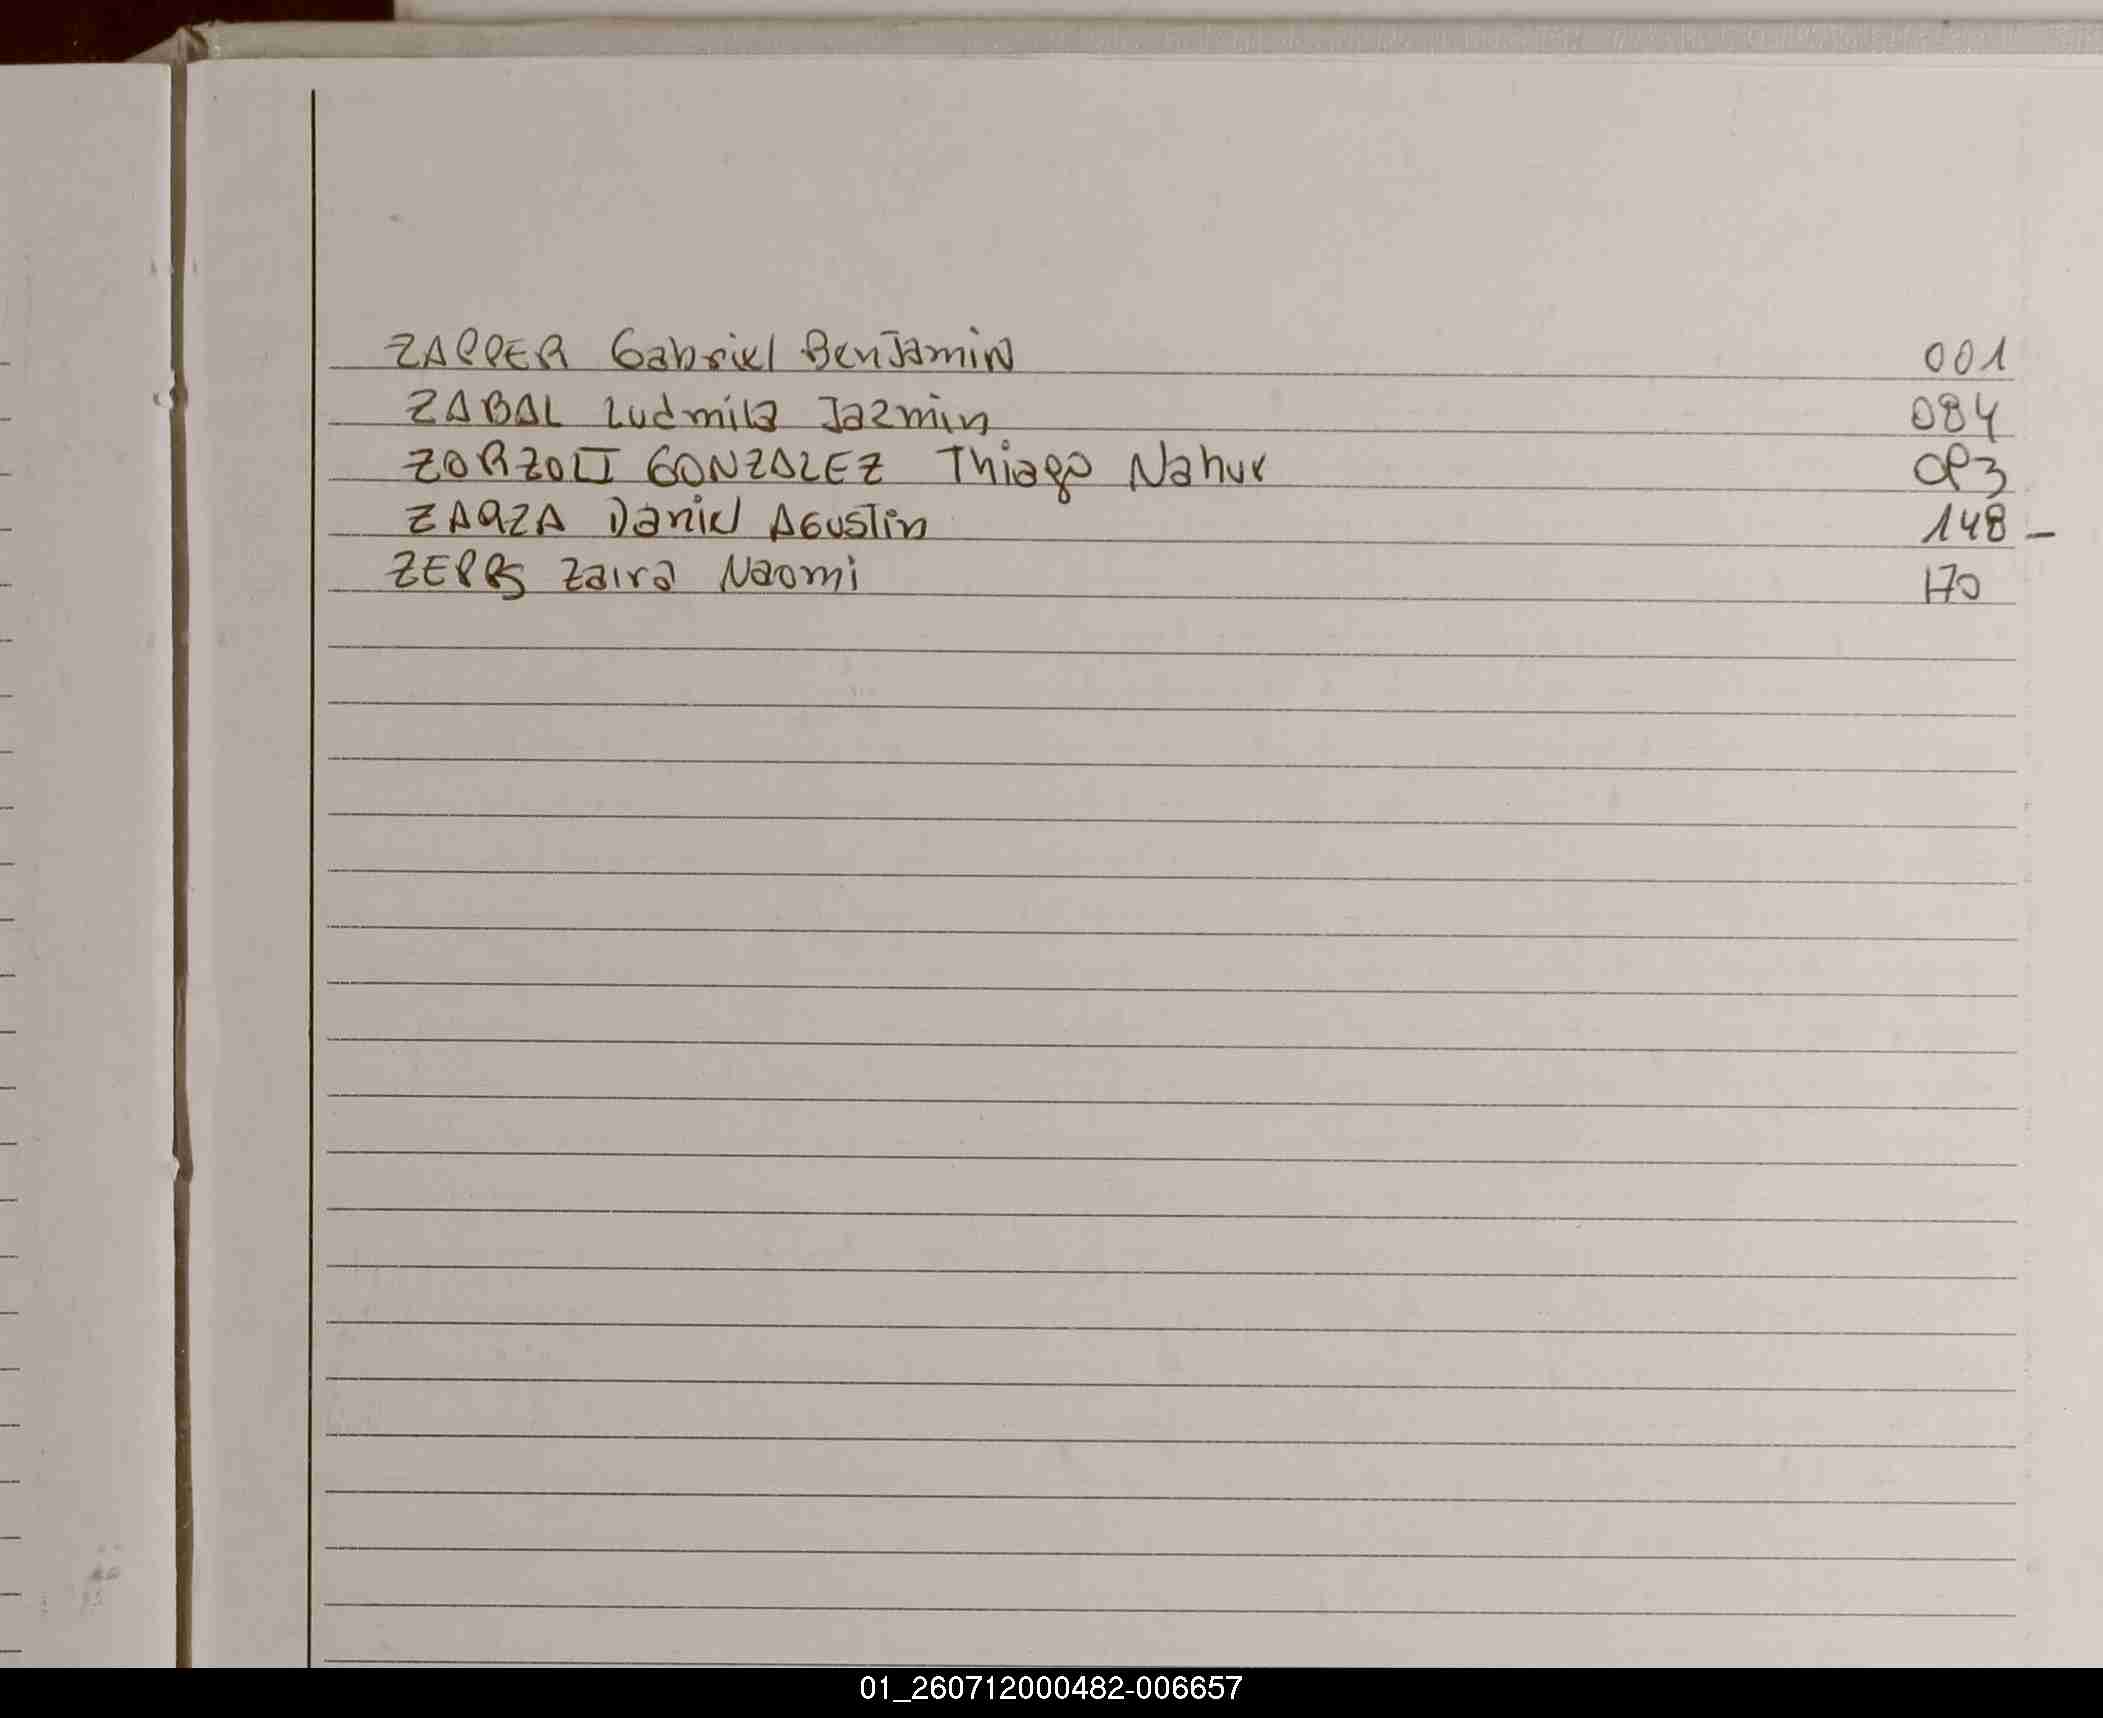 ZAPPER Gabriel BenJamin 001
ZABAL Ludmila Jazmin 084
ZORZOLI GONZALEZ Thiago 093
ZARZA Daniel AGUSTin 148 -
Zaira Naomi 170
01_260712000482-006657